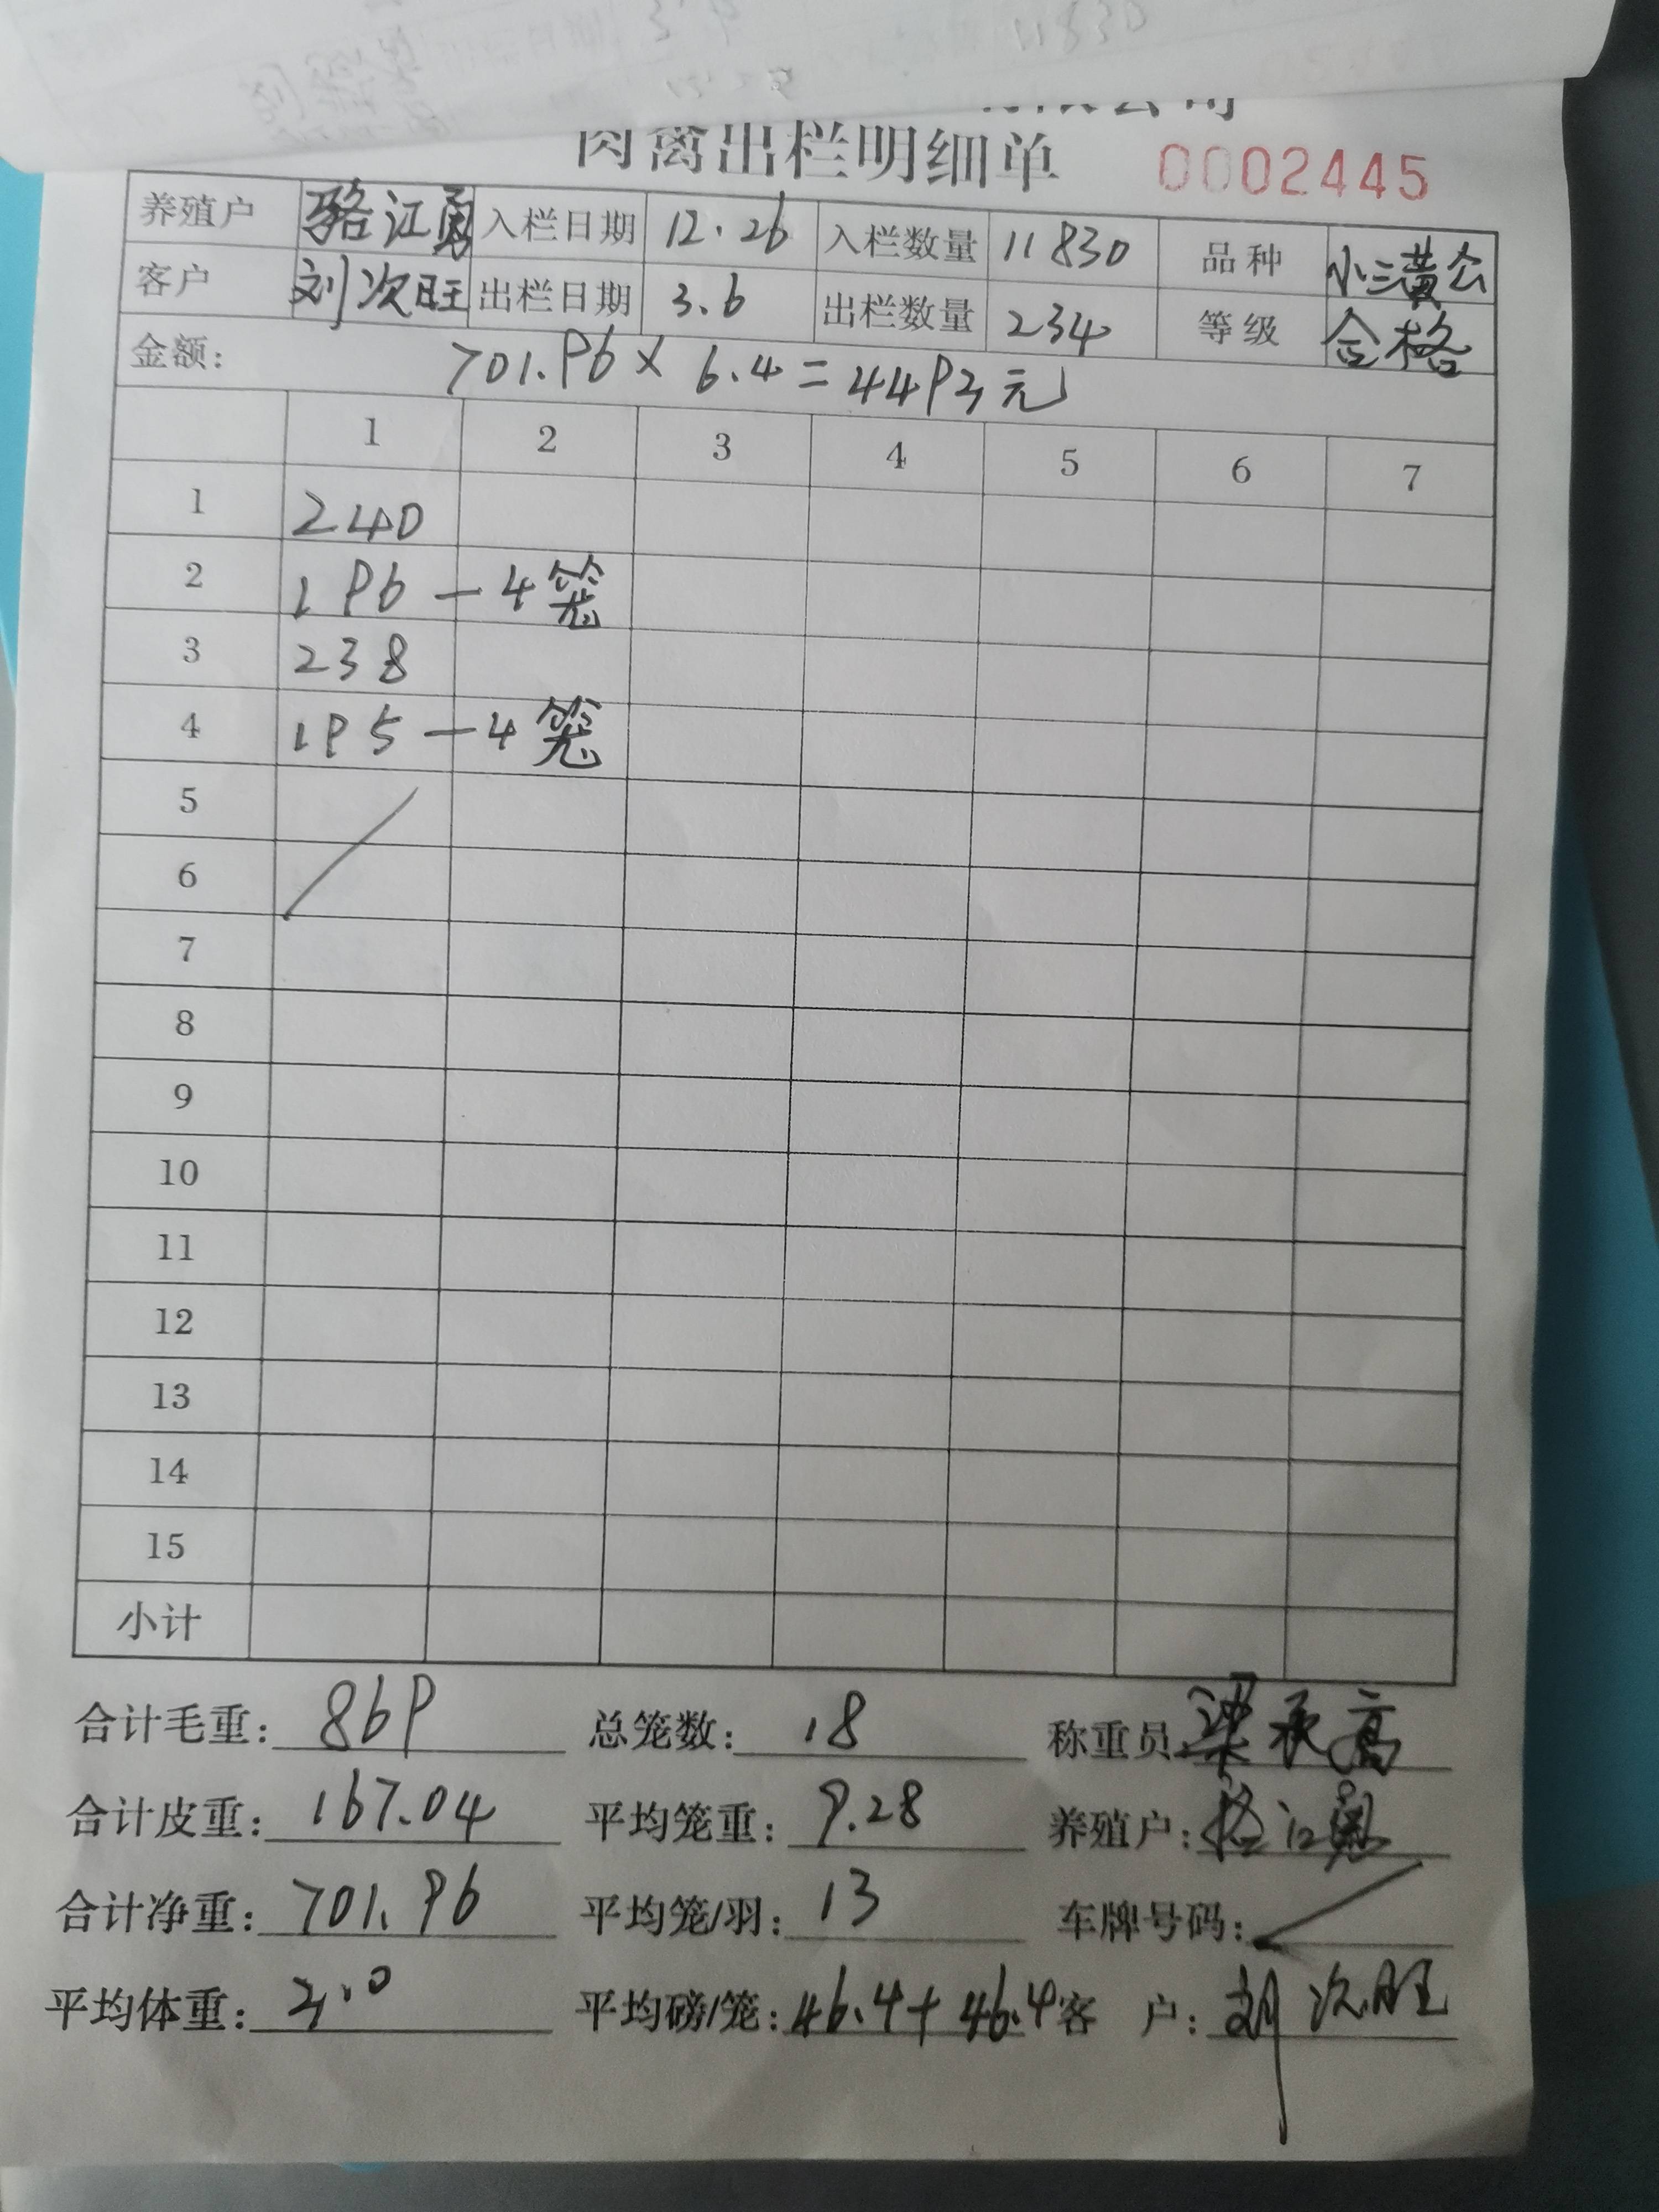 肉禽出栏明细单 0002445
养殖户 骆江勇 入栏日期 12.26 入栏数量 11830 品种 小三黄公
客户 刘次旺 出栏日期 3.6 出栏数量 234 等级 合格
金额: 701.96×6.4=4493元
1 2 3 4 5 6 7
1 240
2 196-4笼
3 238
4 195-4笼
5
6
7
8
9
10
11
12
13
14
15
小计
合计毛重: 869 总笼数: 18 称重员: 梁承高
合计皮重: 167.04 平均笼重: 9.28 养殖户: 骆江勇
合计净重: 701.96 平均笼/羽: 13 车牌号码:
平均体重: 3.0 平均磅/笼: 46.4+46.4 客 户: 刘次旺